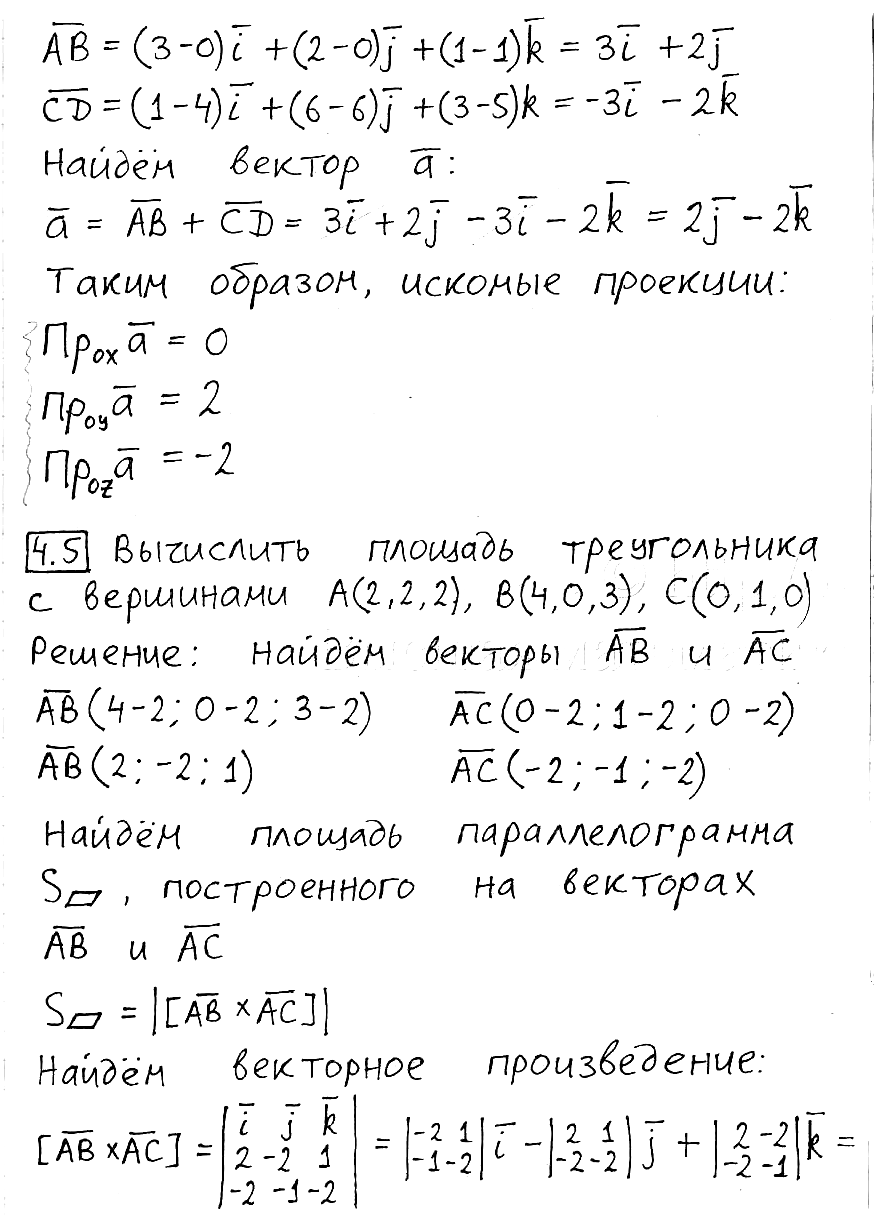 A̅B̅ = (3-0)i̅ + (2-0)j̅ + (1-1)k̅ = 3i̅ + 2j̅
C̅D̅ = (1-4)i̅ + (6-6)j̅ + (3-5)k = -3i̅ - 2k̅
Найдём вектор a̅:
a̅ = A̅B̅ + C̅D̅ = 3i̅ + 2j̅ - 3i̅ - 2k̅ = 2j̅ - 2k̅
Таким образом, искомые проекции:
Пр_ox a̅ = 0
Пр_oy a̅ = 2
Пр_oz a̅ = -2
4.5 Вычислить площадь треугольника
с вершинами A(2,2,2), B(4,0,3), C(0,1,0)
Решение: найдём векторы A̅B̅ и A̅C̅
A̅B̅(4-2; 0-2; 3-2) A̅C̅(0-2; 1-2; 0-2)
A̅B̅(2; -2; 1) A̅C̅(-2; -1; -2)
Найдём площадь параллелограмма
S▱, построенного на векторах
A̅B̅ и A̅C̅
S▱ = |[A̅B̅ × A̅C̅]|
Найдём векторное произведение:
[A̅B̅ × A̅C̅] = |i̅ j̅ k̅; 2 -2 1; -2 -1 -2| = |-2 1; -1 -2| i̅ - |2 1; -2 -2| j̅ + |2 -2; -2 -1| k̅ =